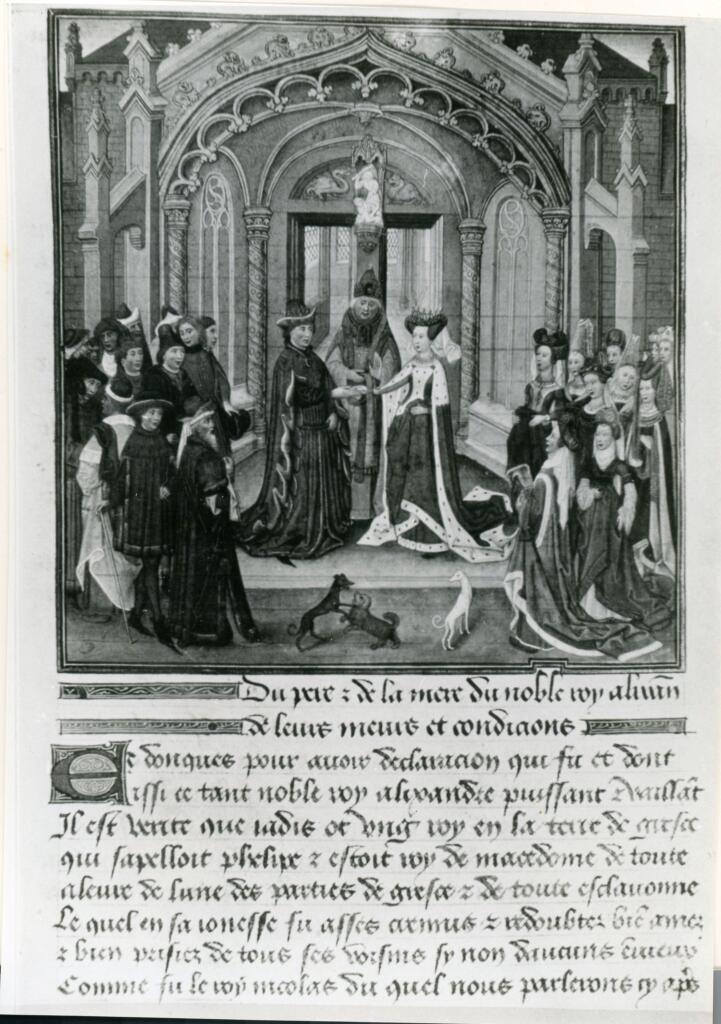 Du pere & de la mere du noble roy alixan
de leurs meurs et condicions
Et donques pour auoir declaracion qui fu et dont
issi ce tant noble roy alixandre puissant & vaillāt
Il est verite que iadis ot vng roy en la terre de gresce
qui sapelloit phelipe & estoit roy de macedoine de toute
aleure de lune des parties de gresce & de toute esclauonnie
Le quel en sa ionesse fu asses cremus & redoubtez biē amez
& bien prisiez de tous ses voisins sy non daucuns
Comme fu le roy nicolas du quel nous parlerons cy